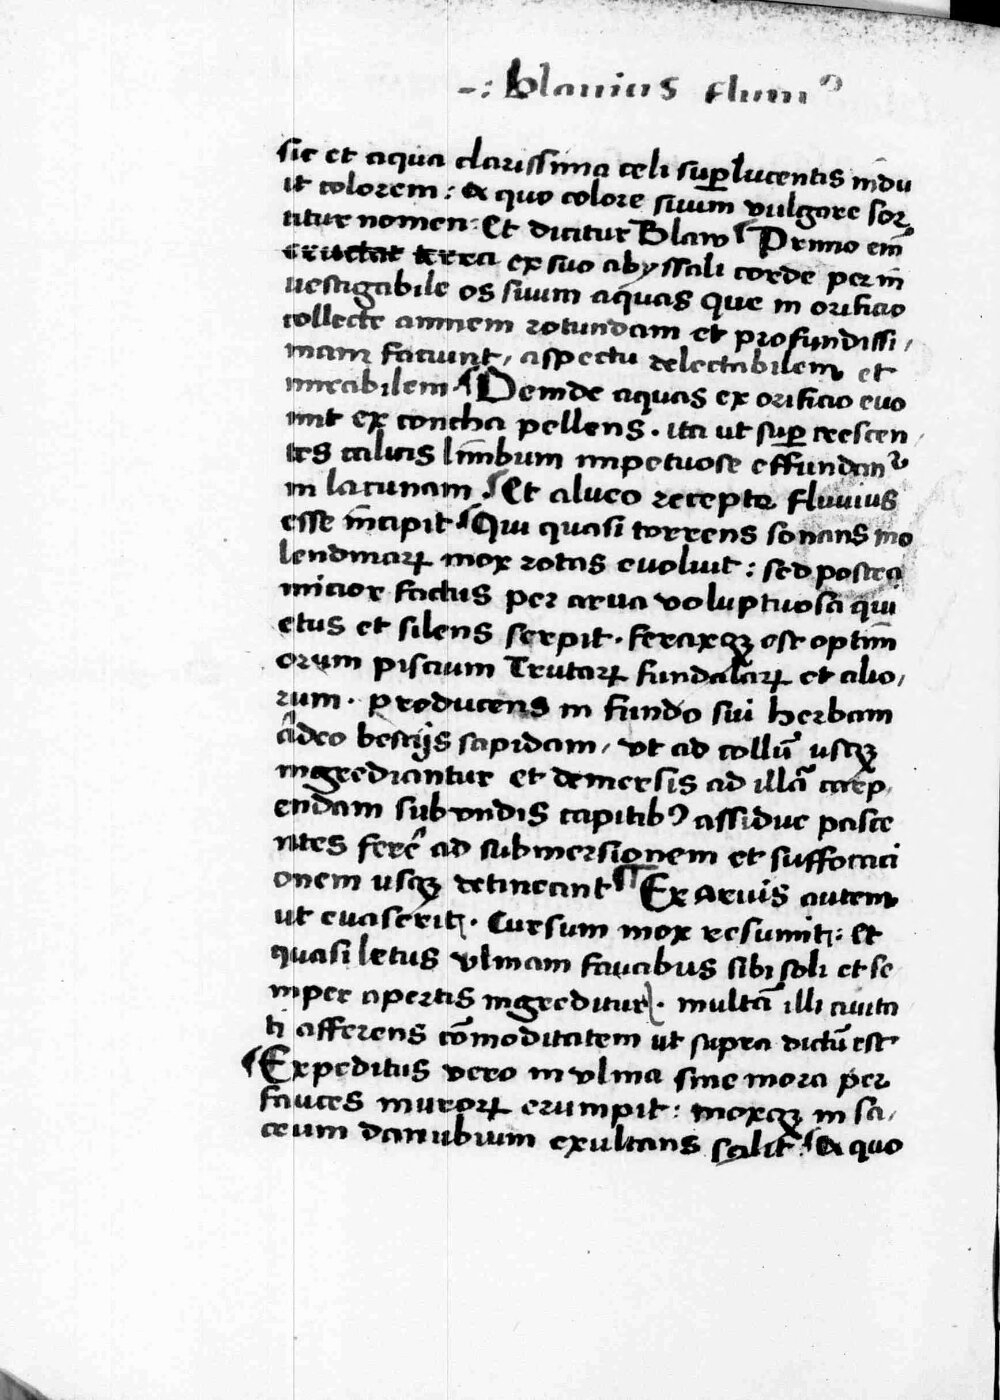 -: blauius fluuiꝰ
sic et aqua clarissima celi suꝑlucentis indu
it colorem : A quo colore suum vulgare sor
titur nomen : Et dicitur Blaw ¶ Primo em̄
eructat terra ex suo abyssali corde per in
uestigabile os suum aquas que in orificio
collecte amnem rotundam et profundissi,
mam faciunt, aspectu delectabilem et
mirabilem ¶ Deinde aquas ex orificio euo
mit ex concha pellens . ita ut suꝑ crescen,
tes calicis limbum impetuose effundant᷑
in lacunam ¶ Et alueo recepto fluuius
esse incipit ¶ Qui quasi torrens sonans mo
lendinaꝝ mox rotas euoluit : sed postea
micior factus per arua voluptuosa qui
etus et silens serpit . feraxqꝫ est optim̄
orum piscium Trutaꝝ fundalaꝝ et alio,
rum . producens in fundo sui herbam
adeo bestijs sapidam, vt ad collū usqꝫ
ingrediantur et demersis ad illā carp,
endam sub vndis capitibꝰ assidue pasce
ntes ferè ad submersionem et suffocaci
onem usqꝫ detineant ¶ Ex aruis autem
ut euaserit . Cursum mox resumit : et
quasi letus vlmam faucibus sibi soli et se
mper apertis ingreditur . multā illi ciuita
ti afferens cōmoditatem ut supra dictū est
¶ Expeditus vero in vlma sine mora per
fauces muroꝝ erumpit : moxqꝫ in sa,
crum danubium exultans salit : A quo